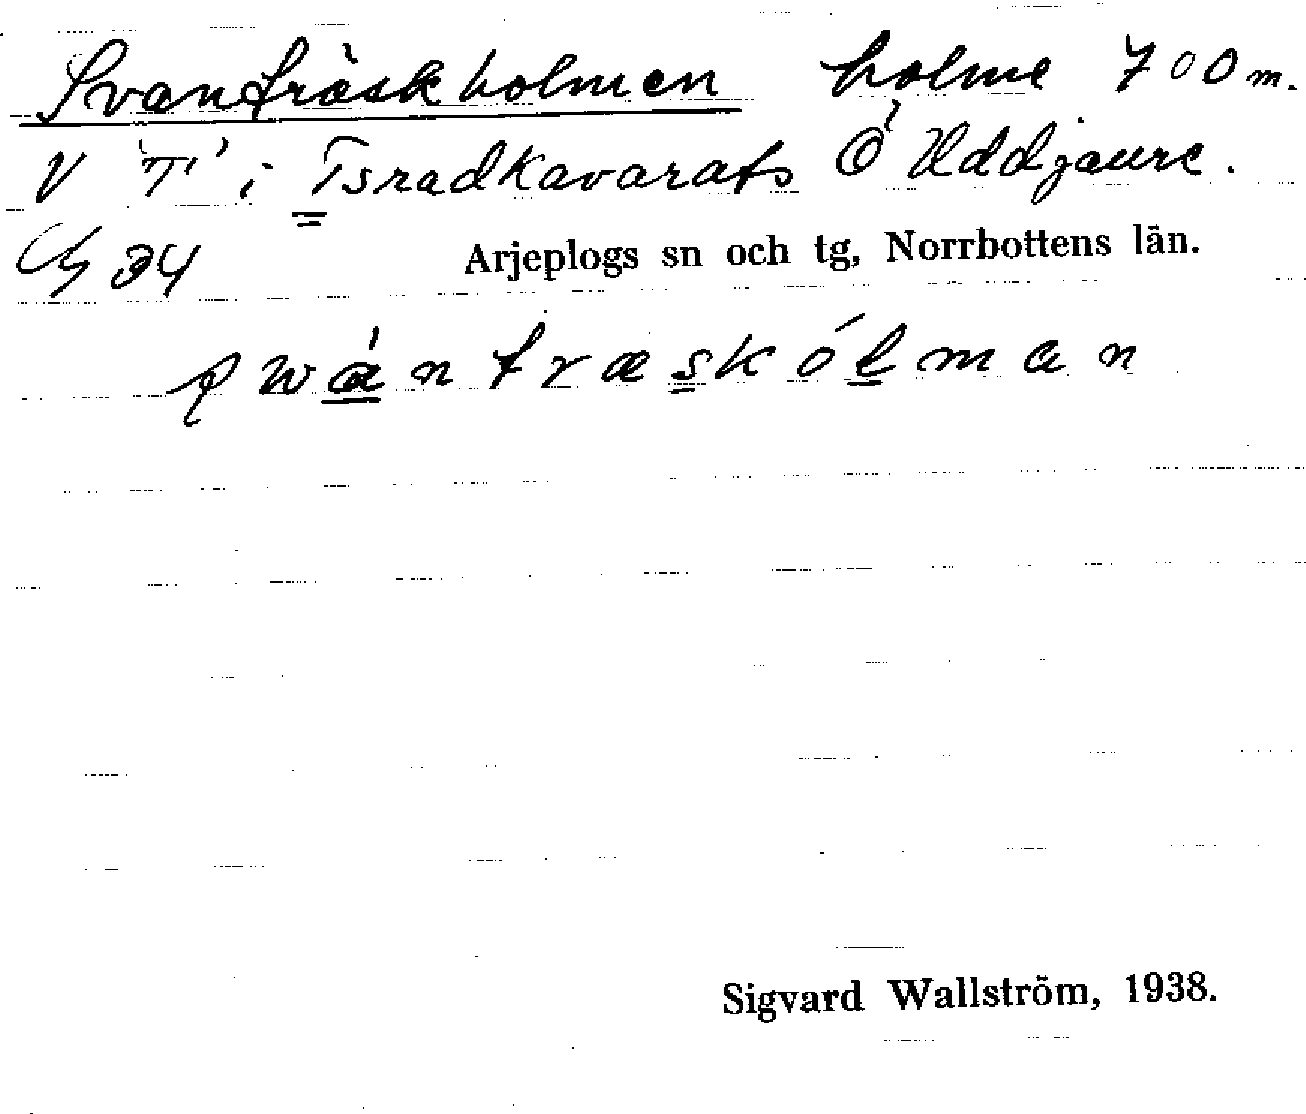 Svanträskholmen holme 700 m.
V "T" i Tsradkavarats Ö Uddjaure.
34 Arjeplogs sn och tg, Norrbottens län.
swántræskólman
Sigvard Wallström, 1938.